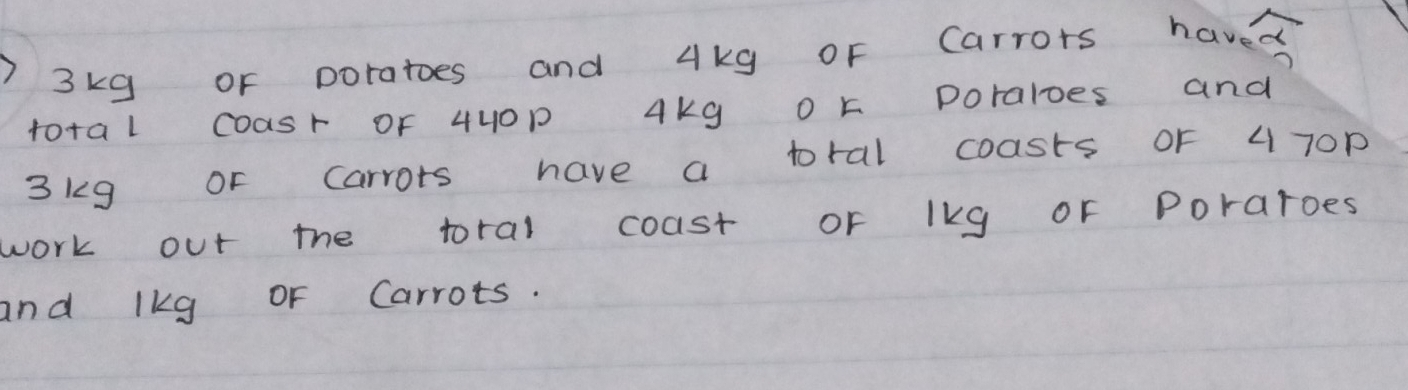 3kg OF potatoes and 4kg OF Carrots have a
total coast OF 440p 4kg OF potatoes and
3kg OF Carrots have a total coasts OF 470p
work out the total coast OF 1kg OF Potatoes
and 1kg OF Carrots.